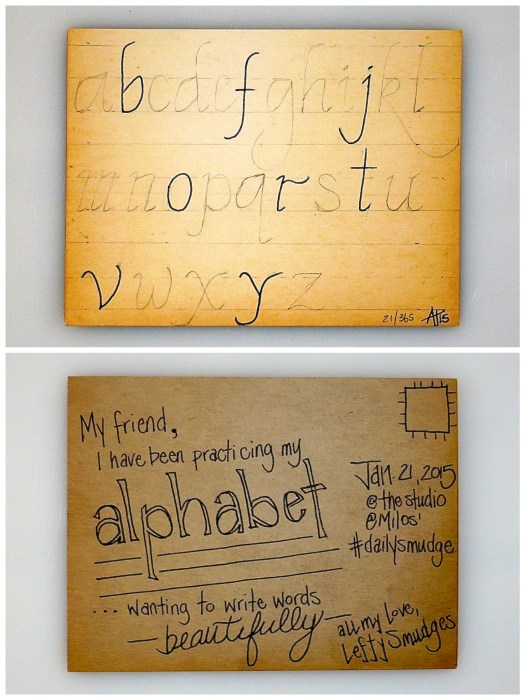 abcdefghijkl
mnopqrstu
vwxyz
21/365 AP15
My friend,
I have been practicing my
alphabet
... wanting to write words
—beautifully—
Jan. 21, 2015
@the studio
@Milos'
#dailysmudge
all my love,
Lefty Smudges